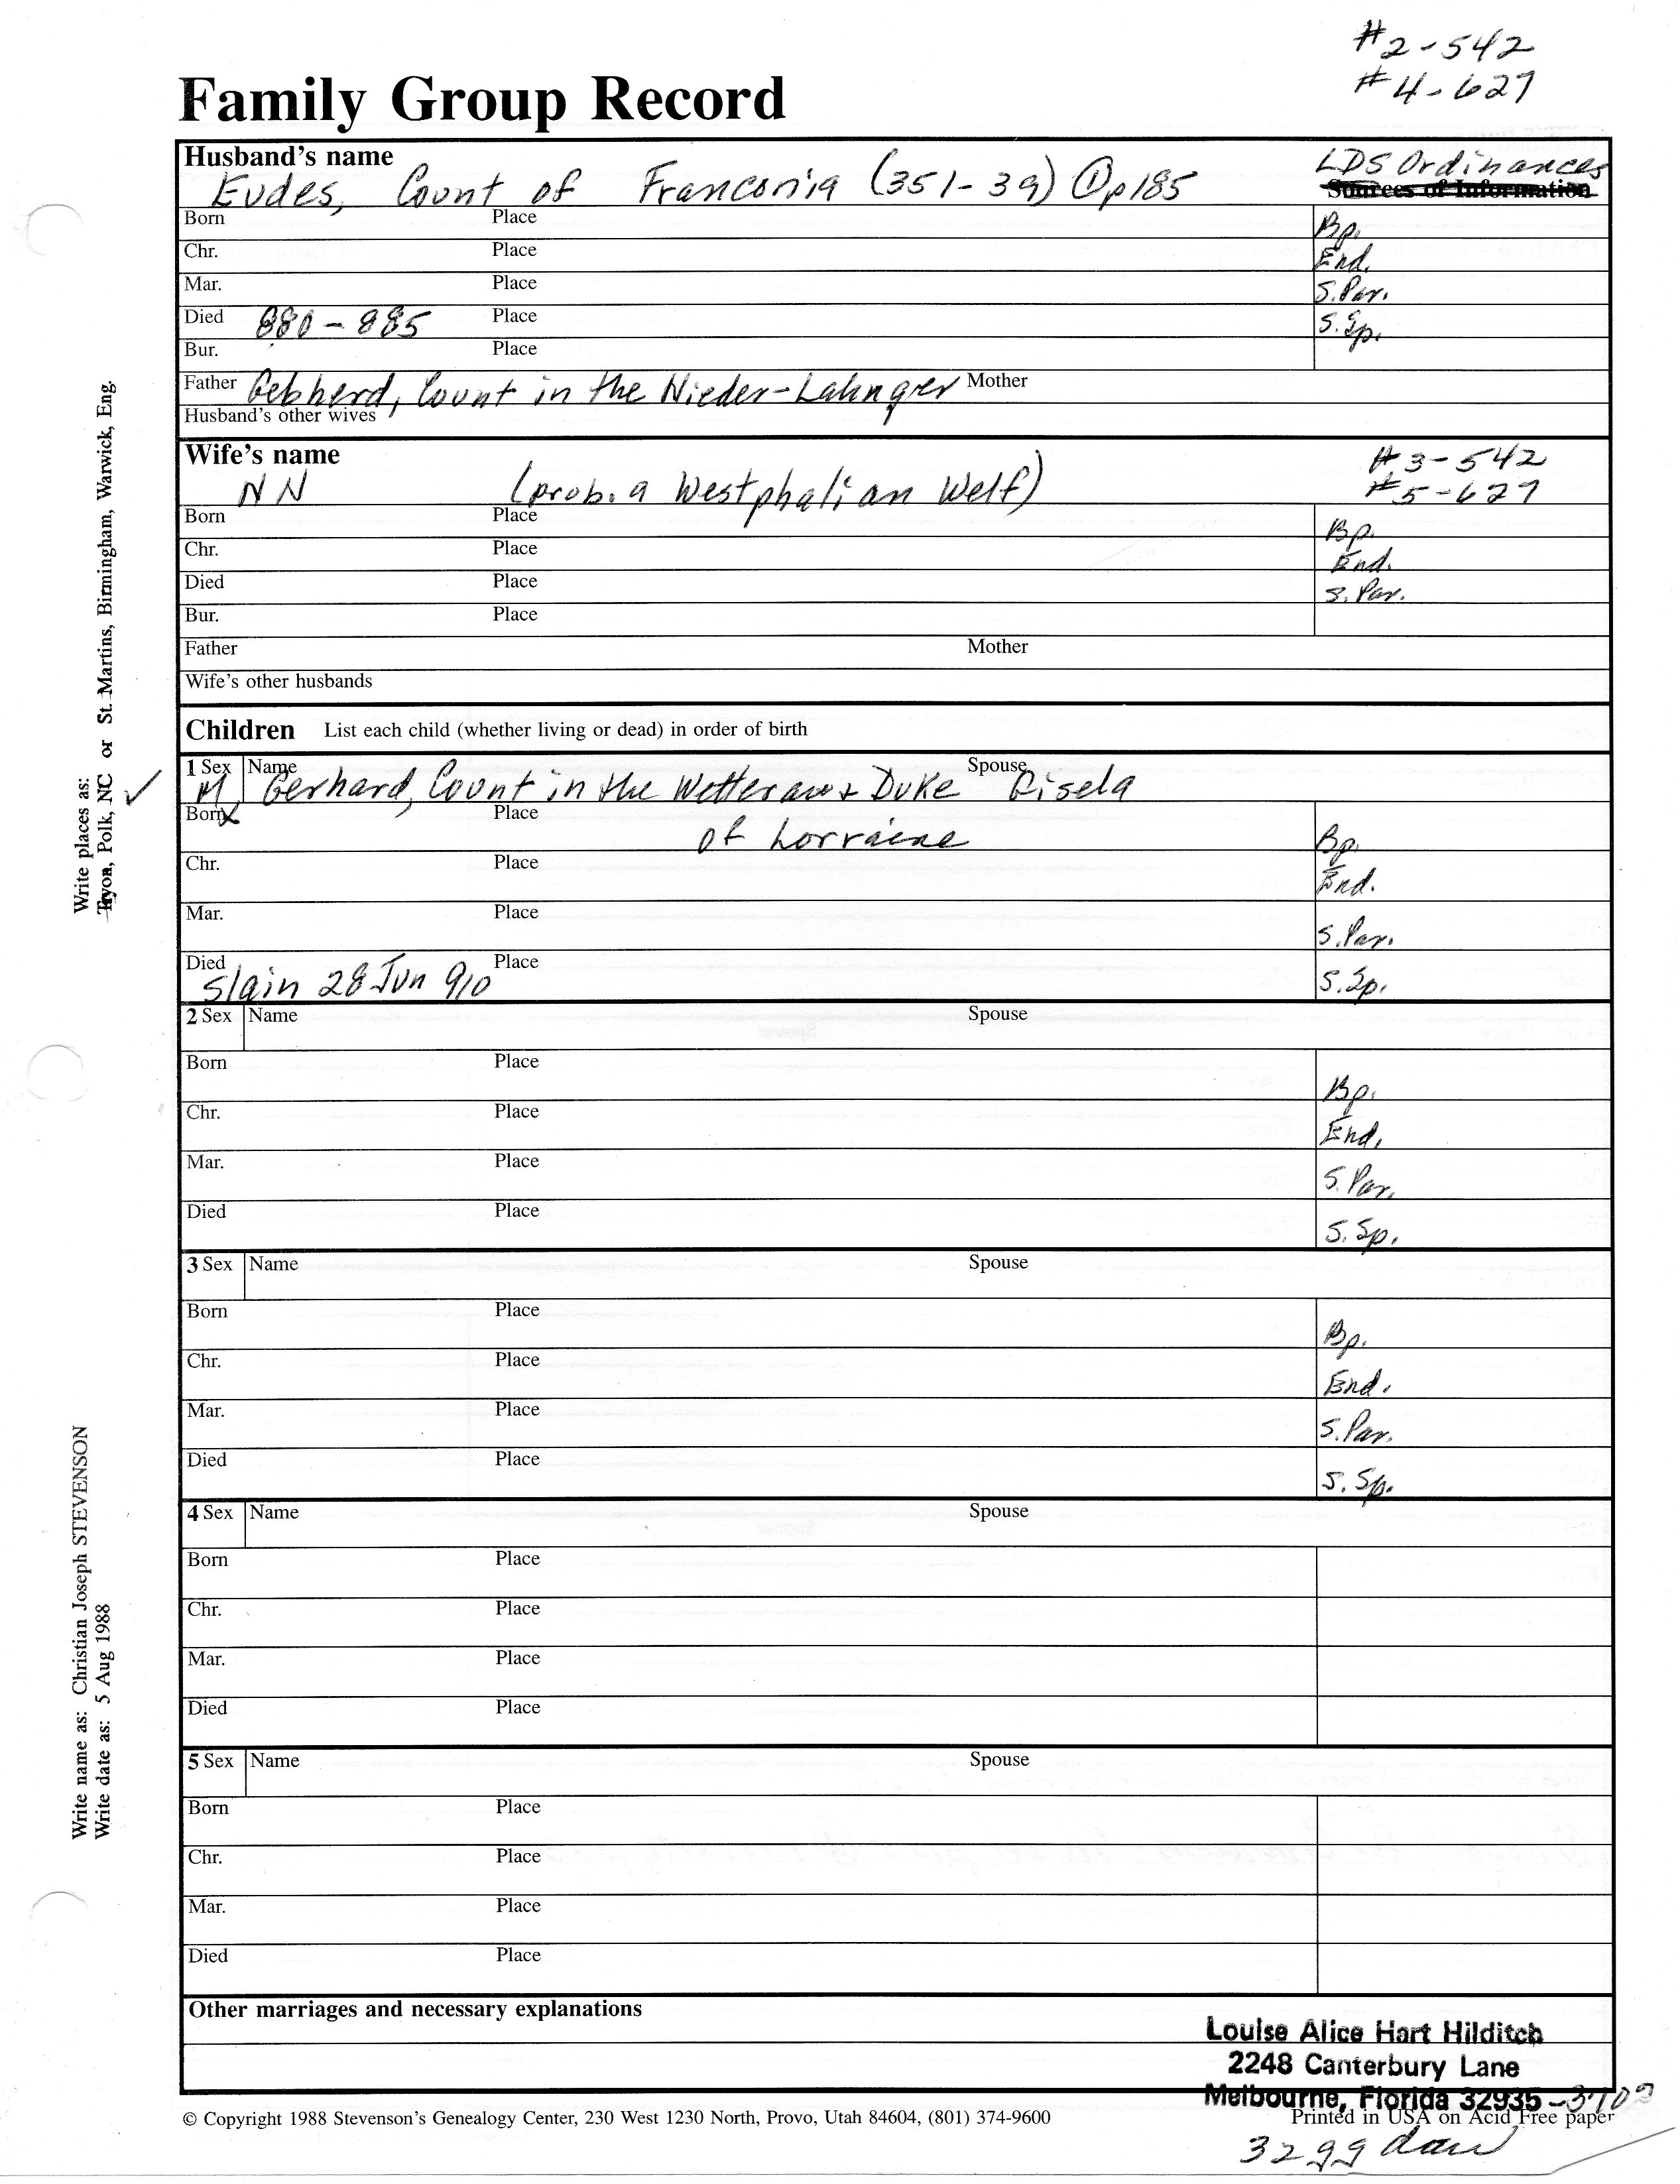 #2-542
#4-627
Family Group Record
Husband's name
Eudes, Count of Franconia (351-39) ① p185
LDS Ordinances
Sources of Information
Born Place Bp.
Chr. Place End.
Mar. Place S. Par.
Died 880-885 Place S. Sp.
Bur. Place
Father Gebherd, Count in the Nieder-Lahnger Mother
Husband's other wives
Wife's name #3-542
NN (prob. a Westphalian Welf) #5-627
Born Place Bp.
Chr. Place End.
Died Place S. Par.
Bur. Place
Father Mother
Wife's other husbands
Children List each child (whether living or dead) in order of birth
1 Sex Name Spouse
M Gerhard, Count in the Wetterau + Duke Gisela
Born X Place of Lorraine Bp.
Chr. Place End.
Mar. Place S. Par.
Died Place
slain 28 Jun 910 S. Sp.
2 Sex Name Spouse
Born Place Bp.
Chr. Place End.
Mar. Place S. Par.
Died Place S. Sp.
3 Sex Name Spouse
Born Place Bp.
Chr. Place End.
Mar. Place S. Par.
Died Place S. Sp.
4 Sex Name Spouse
Born Place
Chr. Place
Mar. Place
Died Place
5 Sex Name Spouse
Born Place
Chr. Place
Mar. Place
Died Place
Other marriages and necessary explanations
Louise Alice Hart Hilditch
2248 Canterbury Lane
Melbourne, Florida 32935
© Copyright 1988 Stevenson's Genealogy Center, 230 West 1230 North, Provo, Utah 84604, (801) 374-9600
Printed in USA on Acid Free paper
32 gg dau
Write places as:
Tryon, Polk, NC or St. Martins, Birmingham, Warwick, Eng.
Write name as: Christian Joseph STEVENSON
Write date as: 5 Aug 1988